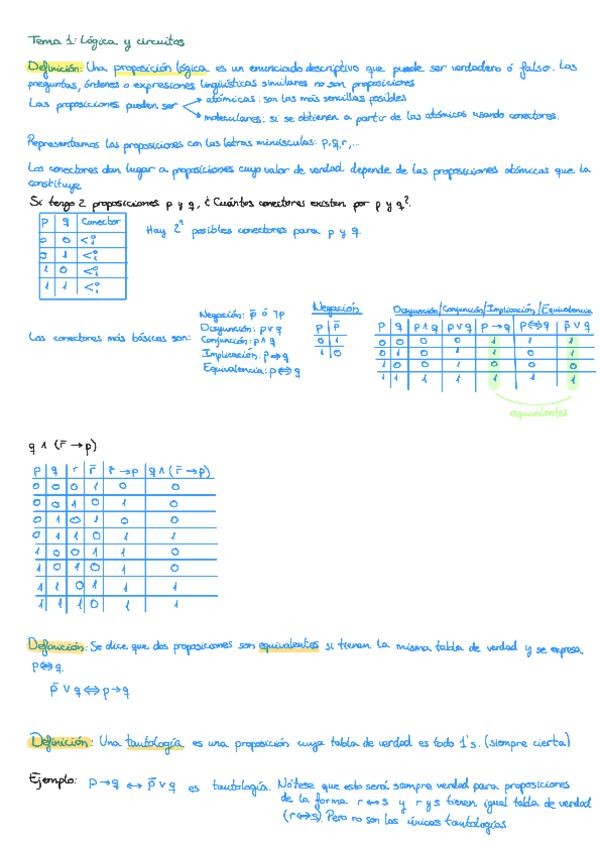 Tema 1: Lógica y circuitos
Definición: Una proposición lógica es un enunciado descriptivo que puede ser verdadero ó falso. Las
preguntas, órdenes o expresiones lingüísticas similares no son proposiciones
Las proposiciones pueden ser
atómicas: son las más sencillas posibles
moleculares: si se obtienen a partir de las atómicas usando conectores.
Representamos las proposiciones con las letras minúsculas: p,q,r,...
Los conectores dan lugar a proposiciones cuyo valor de verdad depende de las proposiciones atómicas que la
constituye
Si tengo 2 proposiciones p y q, ¿Cuántos conectores existen por p y q?
p q Conector
0 0 < 0 1
0 1 < 0 1
1 0 < 0 1
1 1 < 0 1
Hay posibles conectores para p y q
Los conectores más básicos son:
Negación: p̅ ó ¬p
Disyunción: p∨q
Conjunción: p∧q
Implicación: p→q
Equivalencia: p⇔q
Negación
p p̅
0 1
1 0
Disyunción/Conjunción/Implicación/Equivalencia
p q p∧q p∨q p→q p⇔q p̅∨q
0 0 0 0 1 1 1
0 1 0 1 1 0 1
1 0 0 1 0 0 0
1 1 1 1 1 1 1
equivalentes
q ∧ (r̅ → p)
p q r r̅ r̅→p q∧(r̅→p)
0 0 0 1 0 0
0 0 1 0 1 0
0 1 0 1 0 0
0 1 1 0 1 1
1 0 0 1 1 0
1 0 1 0 1 0
1 1 0 1 1 1
1 1 1 0 1 1
Definición: Se dice que dos proposiciones son equivalentes si tienen la misma tabla de verdad y se expresa
p⇔q.
p̅ ∨ q ⇔ p→q
Definición: Una tautología es una proposición cuya tabla de verdad es todo 1's. (siempre cierta)
Ejemplo: p→q ↔ p̅∨q es tautología. Nótese que esto será siempre verdad para proposiciones
de la forma r↔s y r y s tienen igual tabla de verdad
(r⇔s). Pero no son las únicas tautologías